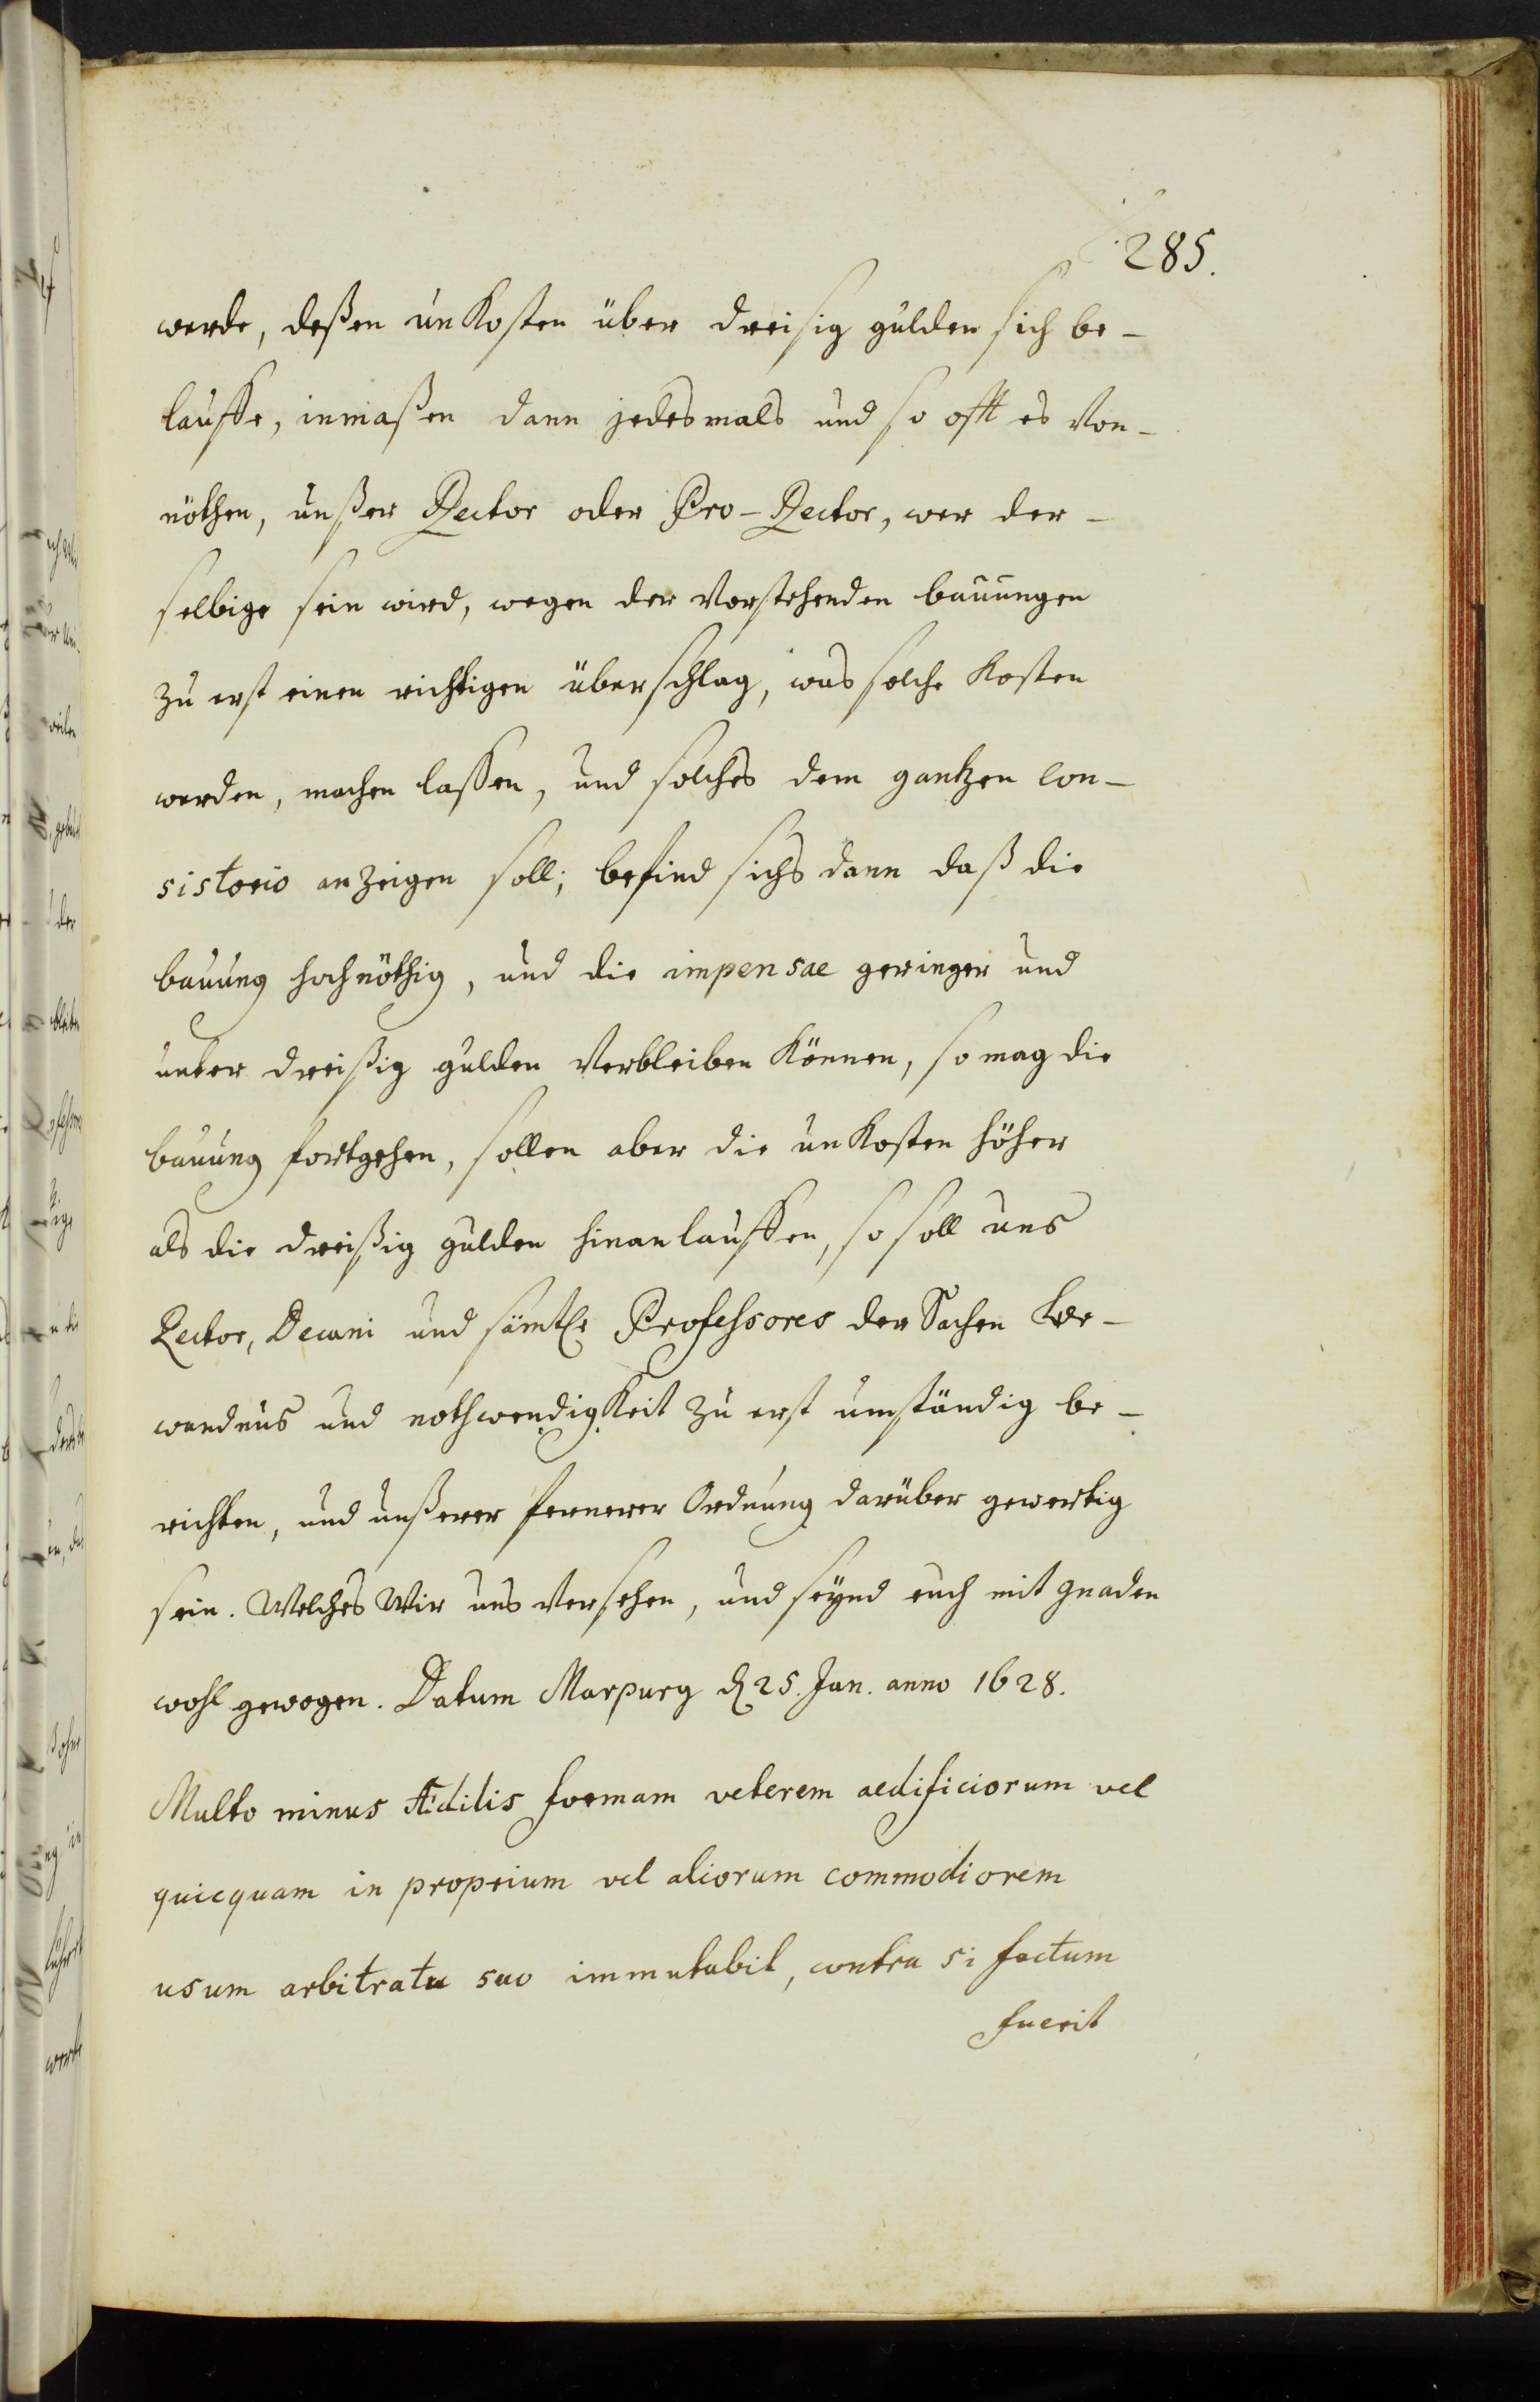 285.
werde, deßen unkosten über dreisig gulden sich be-
lauffe, inmaßen dann jedesmals und so offt es von-
nöthen, unßer Rector oder Pro-Rector, wer der-
selbige sein wird, wegen der vorstehenden bauungen
zu erst einen richtigen überschlag, was solche kosten
werden, machen lassen, und solches dem gantzen Con-
sistorio anzeigen soll; befind sichs dann daß die
bauung hochnöthig, und die impensae geringer und
unter dreißig gulden verbleiben können, so mag die
bauung fortgehen, sollen aber die unkosten höher
als die dreißig gulden hinanlauffen, so soll uns
Rector, Decani und sämtle Professores der Sachen be-
wandnus und nothwendigkeit zu erst umständig be-
richten, und unßerer fernerer Ordnung darüber gewertig
sein. Welches Wir uns versehen, und seynd euch mit gnaden
wohl gewogen. Datum Marpurg d 25. Jan. anno 1628.
Multo minus Ædilis formam veterem aedificiorum vel
quicquam in proprium vel aliorum commodiorem
usum arbitratu suo immutabit, contra si factum
fuerit